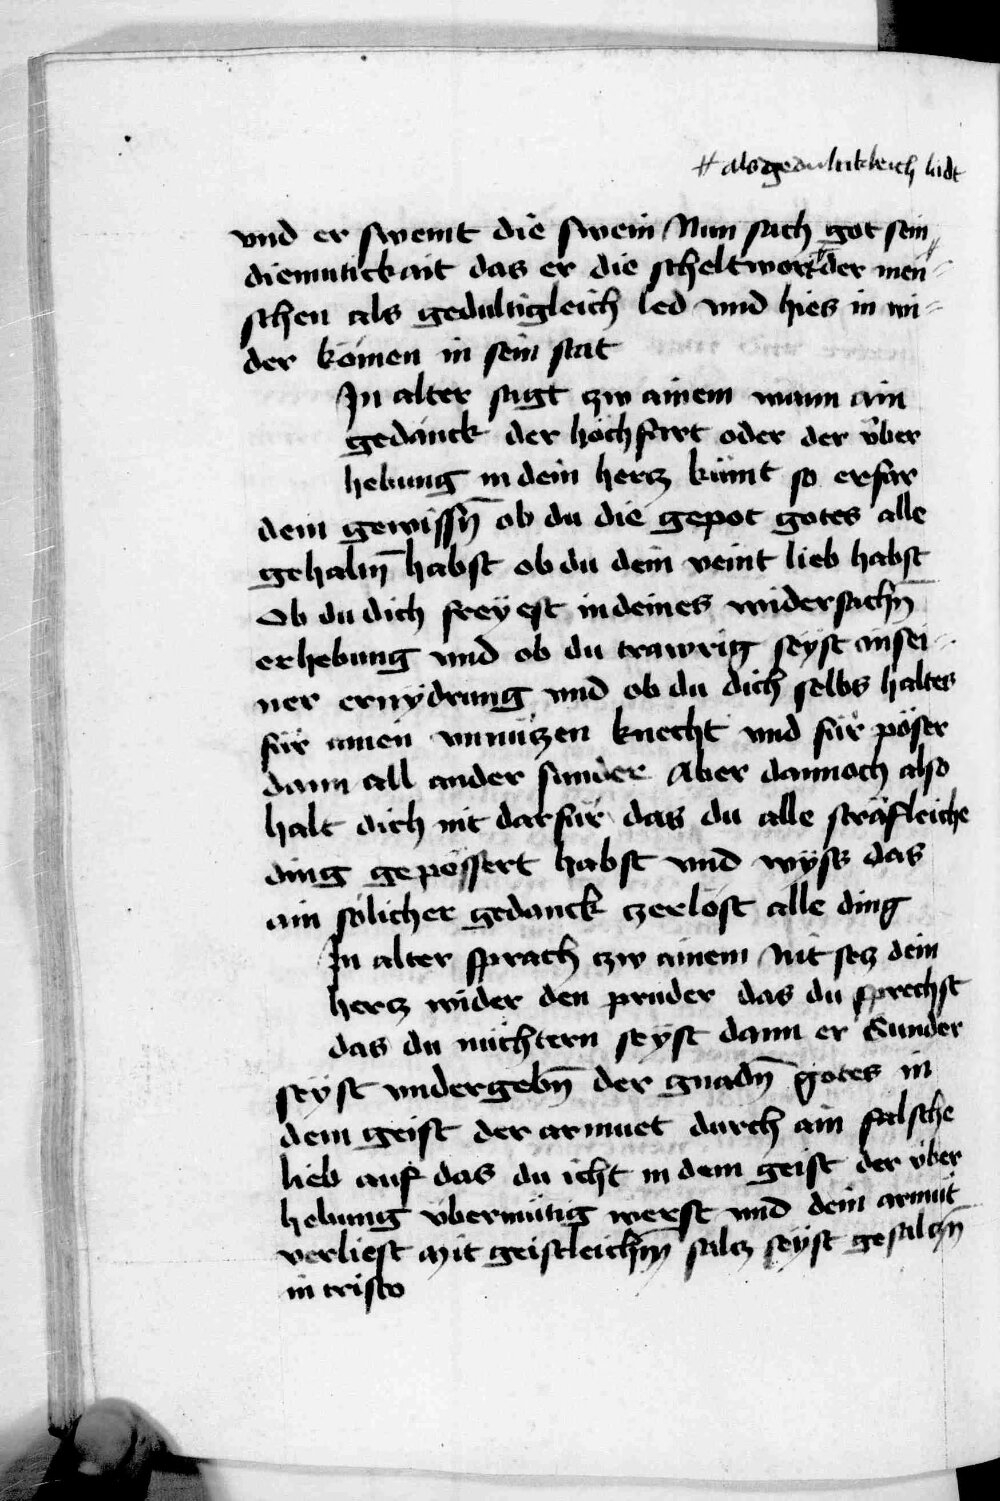 # als gedultikleich lidt
vnd er swemt die swein Nun sach got sein
diemutickait das er die scheltwort der men⸗
schen als gedultigleich led vnd hies in wi⸗
der komen in sein stat
In alter sagt zw ainem wann ain
gedanck der hochfart oder der vber
hebung in dein hercz kümt so erfar
dein gewissn̄ ob du die gepot gotes alle
gehaltn̄ habst ob du dein veint lieb habst
Ob du dich freyest in deines widersachn̄
erhebung vnd ob du trawrig seyst in sei⸗
ner ernydrung vnd ob du dich selbs haltes
für ainen vnnüczen knecht vnd für pöser
dann all ander sunder Aber dannoch also
halt dich nit darfür das du alle sträfleiche
ding gepössert habst vnd wyss das
ain sölicher gedanck czerlöst alle ding
In alter sprach zw ainem Nit secz dein
hercz wider den pruder das du sprechst
das du nüchtern seyst dann er Sunder
seyst vndergebn̄ der gnadn̄ gotes in
dem geist der armuet durch ain falsche
lieb auf das du icht in dem geist der vber
hebung vbermütig werst vnd dein armut
verliest Mit geistleichm̄ salcz seyst gesalczn̄
in cristo